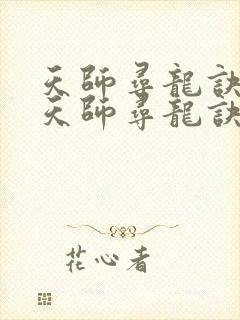 天師尋龍訣
天師尋龍訣
花心者